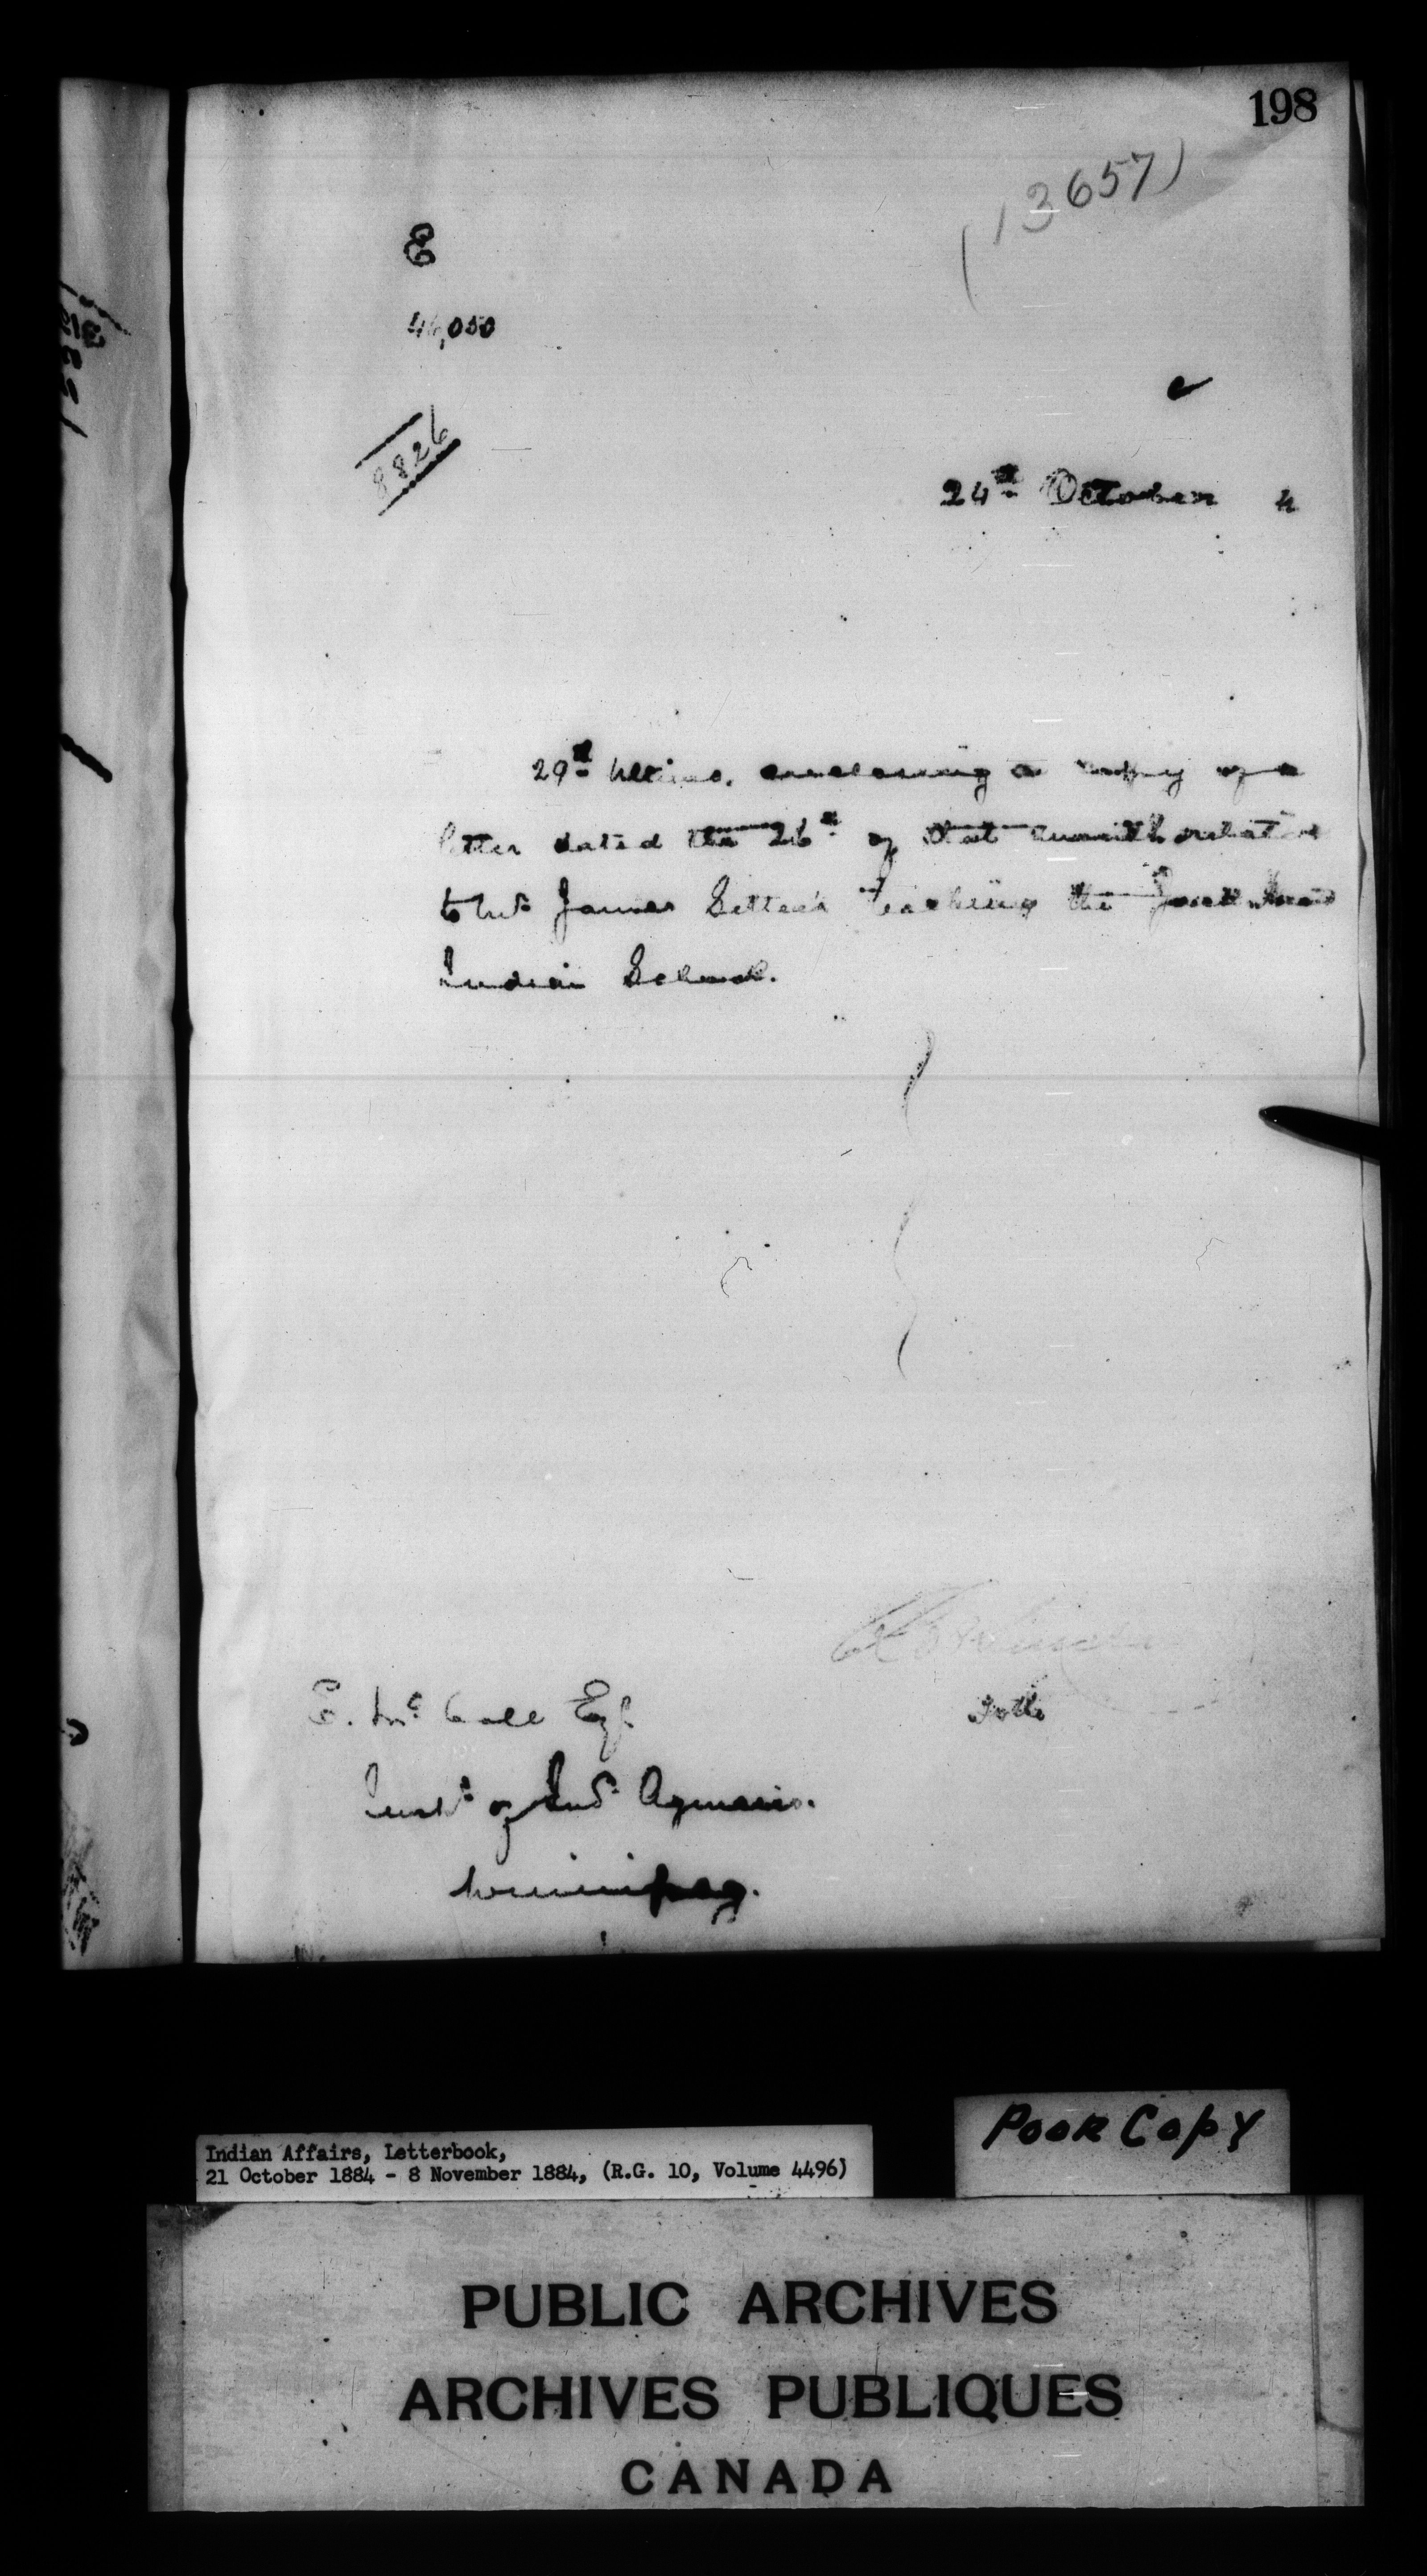 198
(13657)
E
46,050
8826
24th October 4
29th Ultimo, enclosing a copy of a
letter dated the 26th of that month relative
to Mr James Settee's teaching the
Indian School.
E. McColl Esq.
Inspr of Ind. Agencies.
Winnipeg.
Poor Copy
Indian Affairs, Letterbook,
21 October 1884 - 8 November 1884, (R.G. 10, Volume 4496)
PUBLIC ARCHIVES
ARCHIVES PUBLIQUES
CANADA